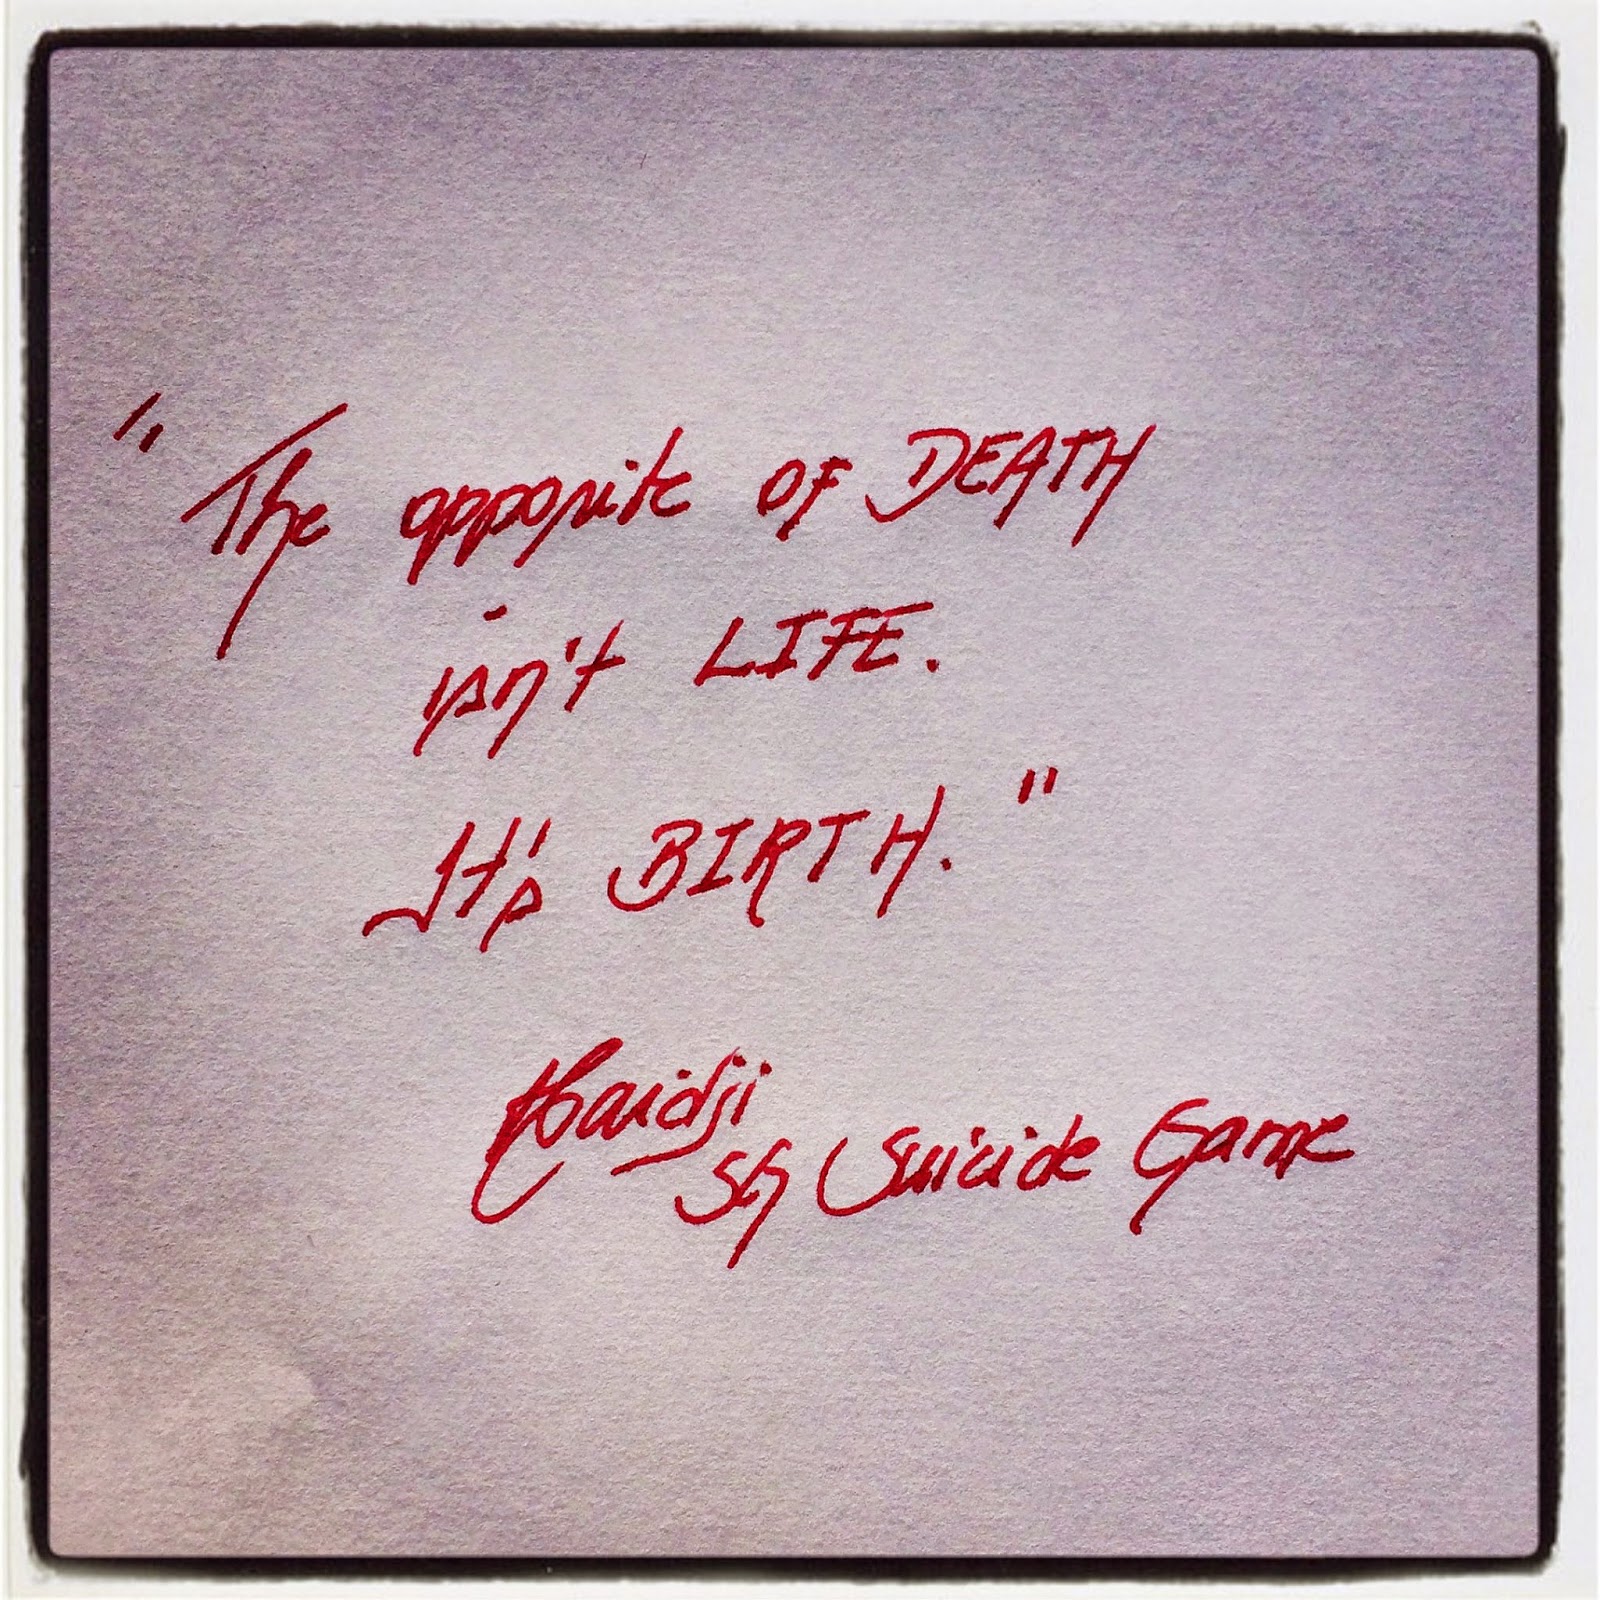 "The opposite of DEATH
isn't LIFE.
It's BIRTH."
Haidji
SG Suicide Game